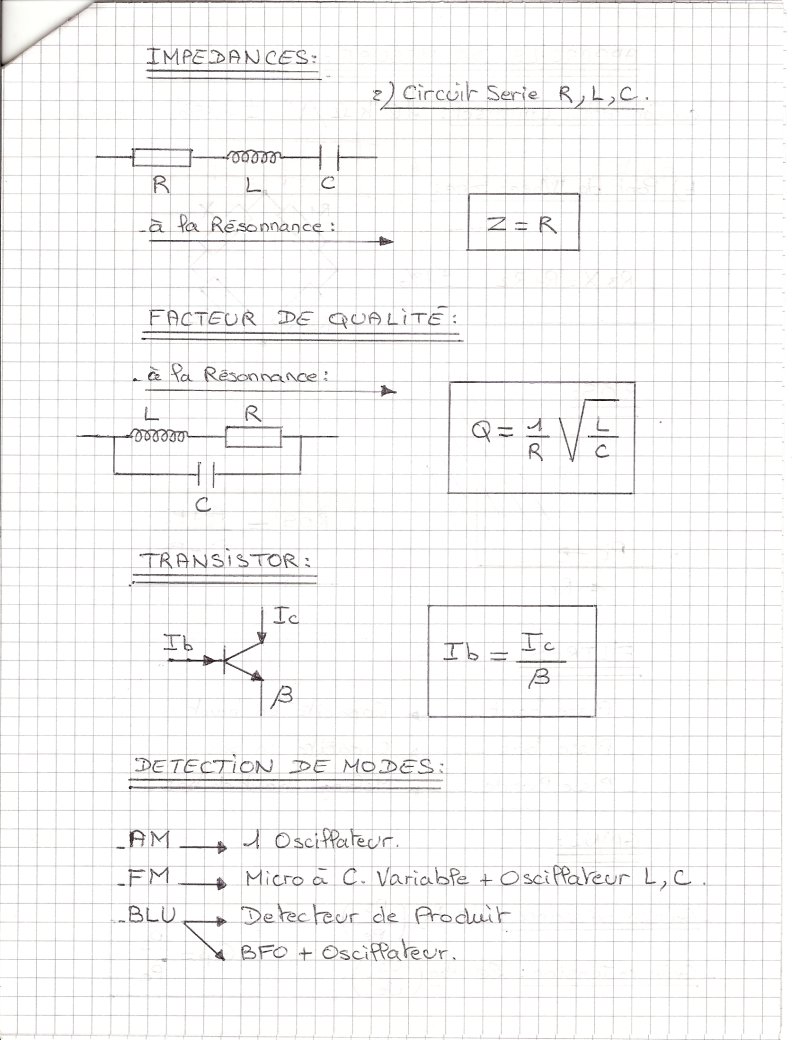 IMPEDANCES:
2) Circuit Serie R, L, C.
R L C
- à la Résonnance:
Z = R
FACTEUR DE QUALITÉ:
- à la Résonnance:
L R
C
Q = 1/R √L/C
TRANSISTOR:
Ic
Ib
β
Ib = Ic/β
DETECTION DE MODES:
- AM → 1 Oscillateur.
- FM → Micro à C. Variable + Oscillateur L, C.
- BLU → Detecteur de Produit
BFO + Oscillateur.